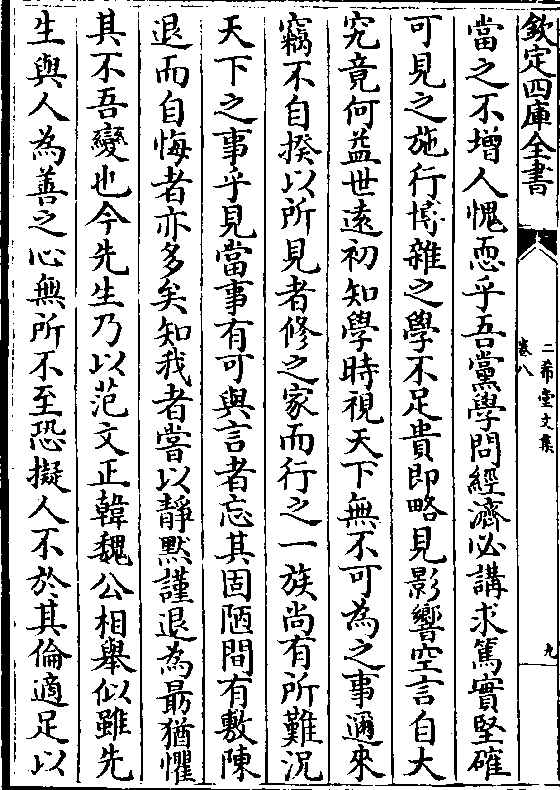 欽定四庫全書
二希堂文集
卷八
九
當之不增人愧恧乎吾黨學問經濟必講求篤實堅確
可見之施行博雜之學不足貴即略見影響空言自大
究竟何益世遠初知學時視天下無不可為之事邇來
竊不自揆以所見者修之家而行之一族尚有所難況
天下之事乎見當事有可與言者忘其固陋間有敷陳
退而自悔者亦多矣知我者嘗以靜默謹退為最猶懼
其不吾變也今先生乃以范文正韓魏公相舉似雖先
生與人為善之心無所不至恐擬人不於其倫適足以